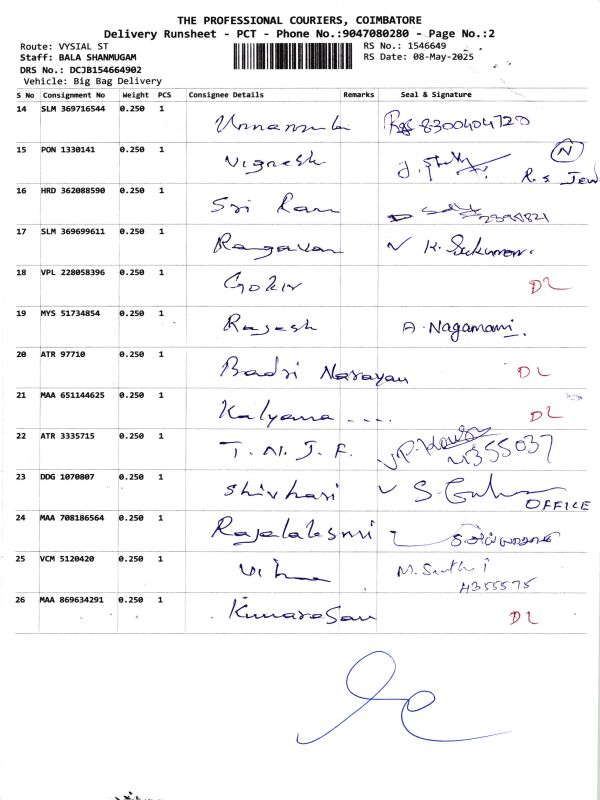 THE PROFESSIONAL COURIERS, COIMBATORE
Delivery Runsheet - PCT - Phone No.:9047080280 - Page No.:2
Route: VYSIAL ST RS No.: 1546649
Staff: BALA SHANMUGAM RS Date: 08-May-2025
DRS No.: DCJB154664902
Vehicle: Big Bag Delivery
S No Consignment No Weight PCS Consignee Details Remarks Seal & Signature
14 SLM 369716544 0.250 1 8300404720
15 PON 1330141 0.250 1 Vignesh N
R.S Jew
16 HRD 362088590 0.250 1 Sri Ram
17 SLM 369699611 0.250 1 Ragavan K. Sukumar.
18 VPL 228058396 0.250 1 Gokir DL
19 MYS 51734854 0.250 1 Rajesh A. Nagamani.
20 ATR 97710 0.250 1 Badri Narayan DL
21 MAA 651144625 0.250 1 Kalyana .... DL
22 ATR 3335715 0.250 1 T. N. J. F. 4355037
23 DDG 1070807 0.250 1 Shivhari S.
OFFICE
24 MAA 708186564 0.250 1 Rajalakshmi
25 VCM 5120420 0.250 1 M.
4355575
26 MAA 869634291 0.250 1 Kumaresan DL